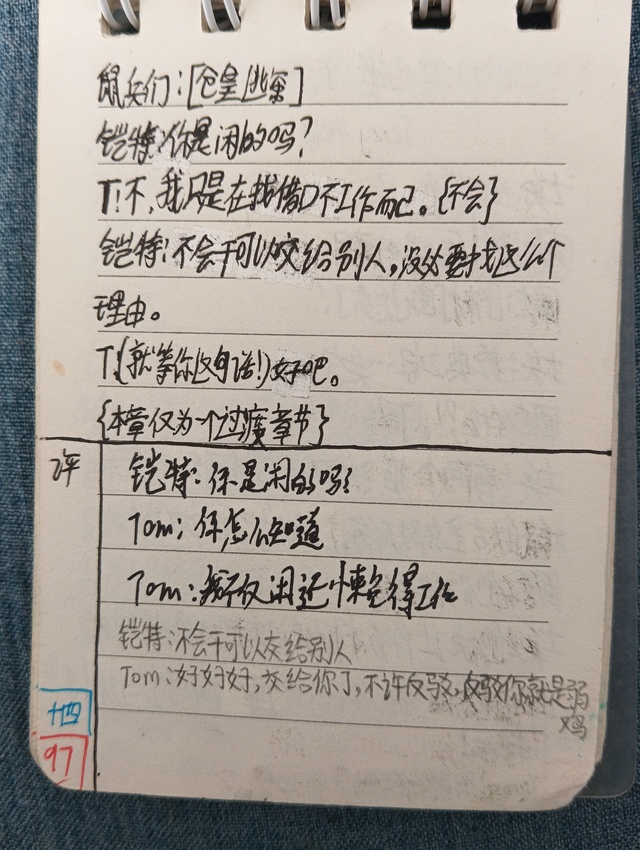 鼠兵们：[仓皇逃窜]
铠特：你是闲的吗？
T：不，我只是在找借口不工作而已。{不会}
铠特：不会干可以交给别人，没必要找这么个
理由。
T：(就等你这句话！)好吧。
{本章仅为一个过渡章节}
评
铠特：你是闲的吗？
Tom：你怎么知道
Tom：我不仅闲还懒得工作
铠特：不会干可以交给别人
Tom：好好好，交给你了，不许反驳，反驳你就是弱
鸡
十四
97